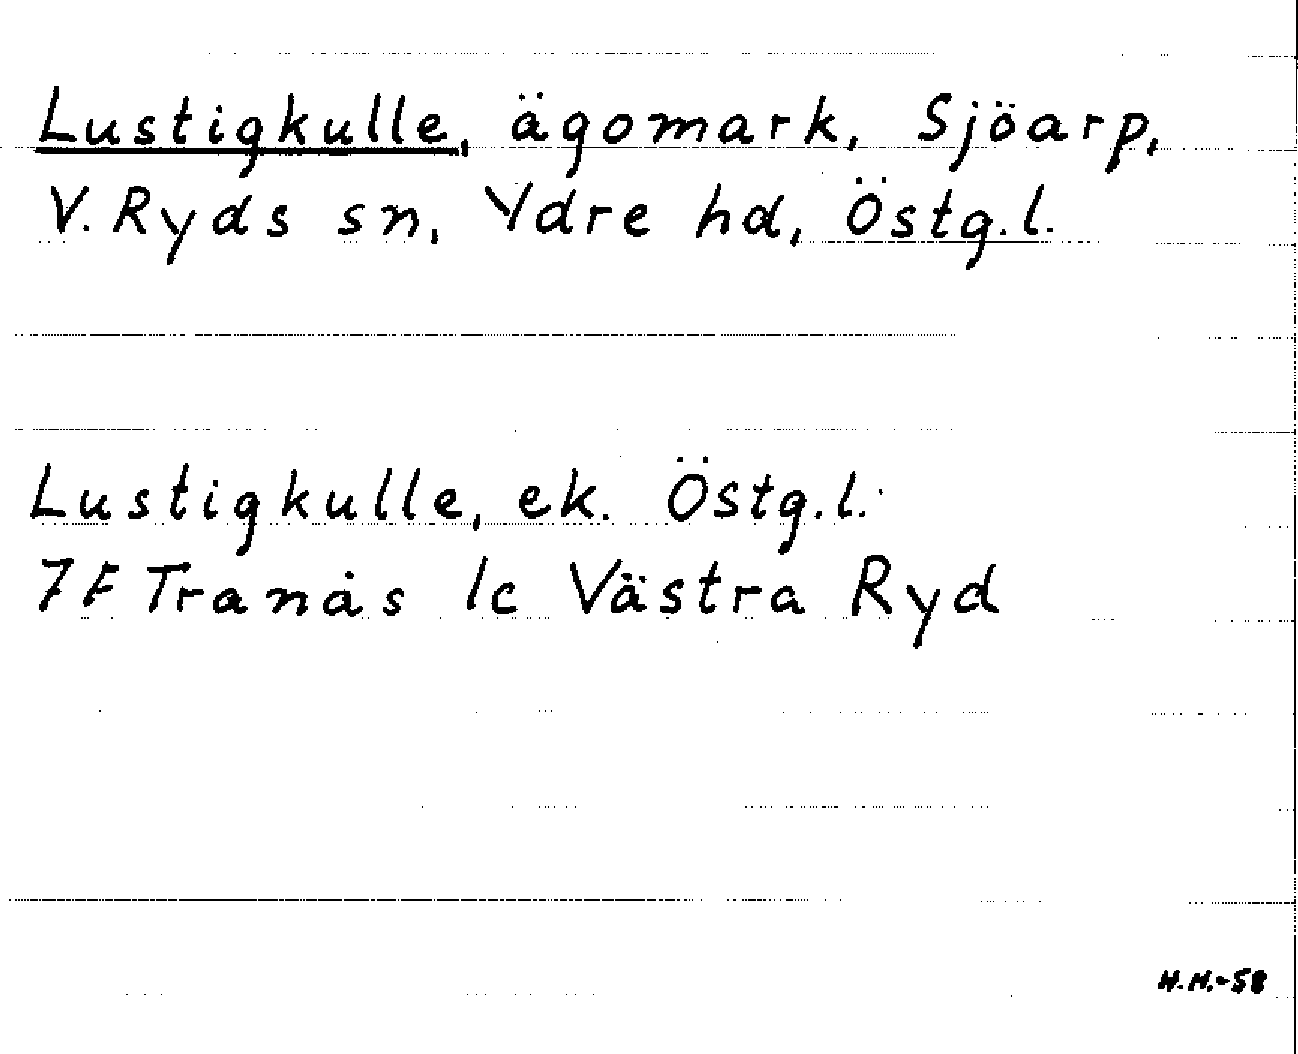 Lustigkulle, ägomark, Sjöarp,
V. Ryds sn, Ydre hd, Östg.l.
Lustigkulle, ek. Östg.l.
7F Tranås 1c Västra Ryd
H.H.-58